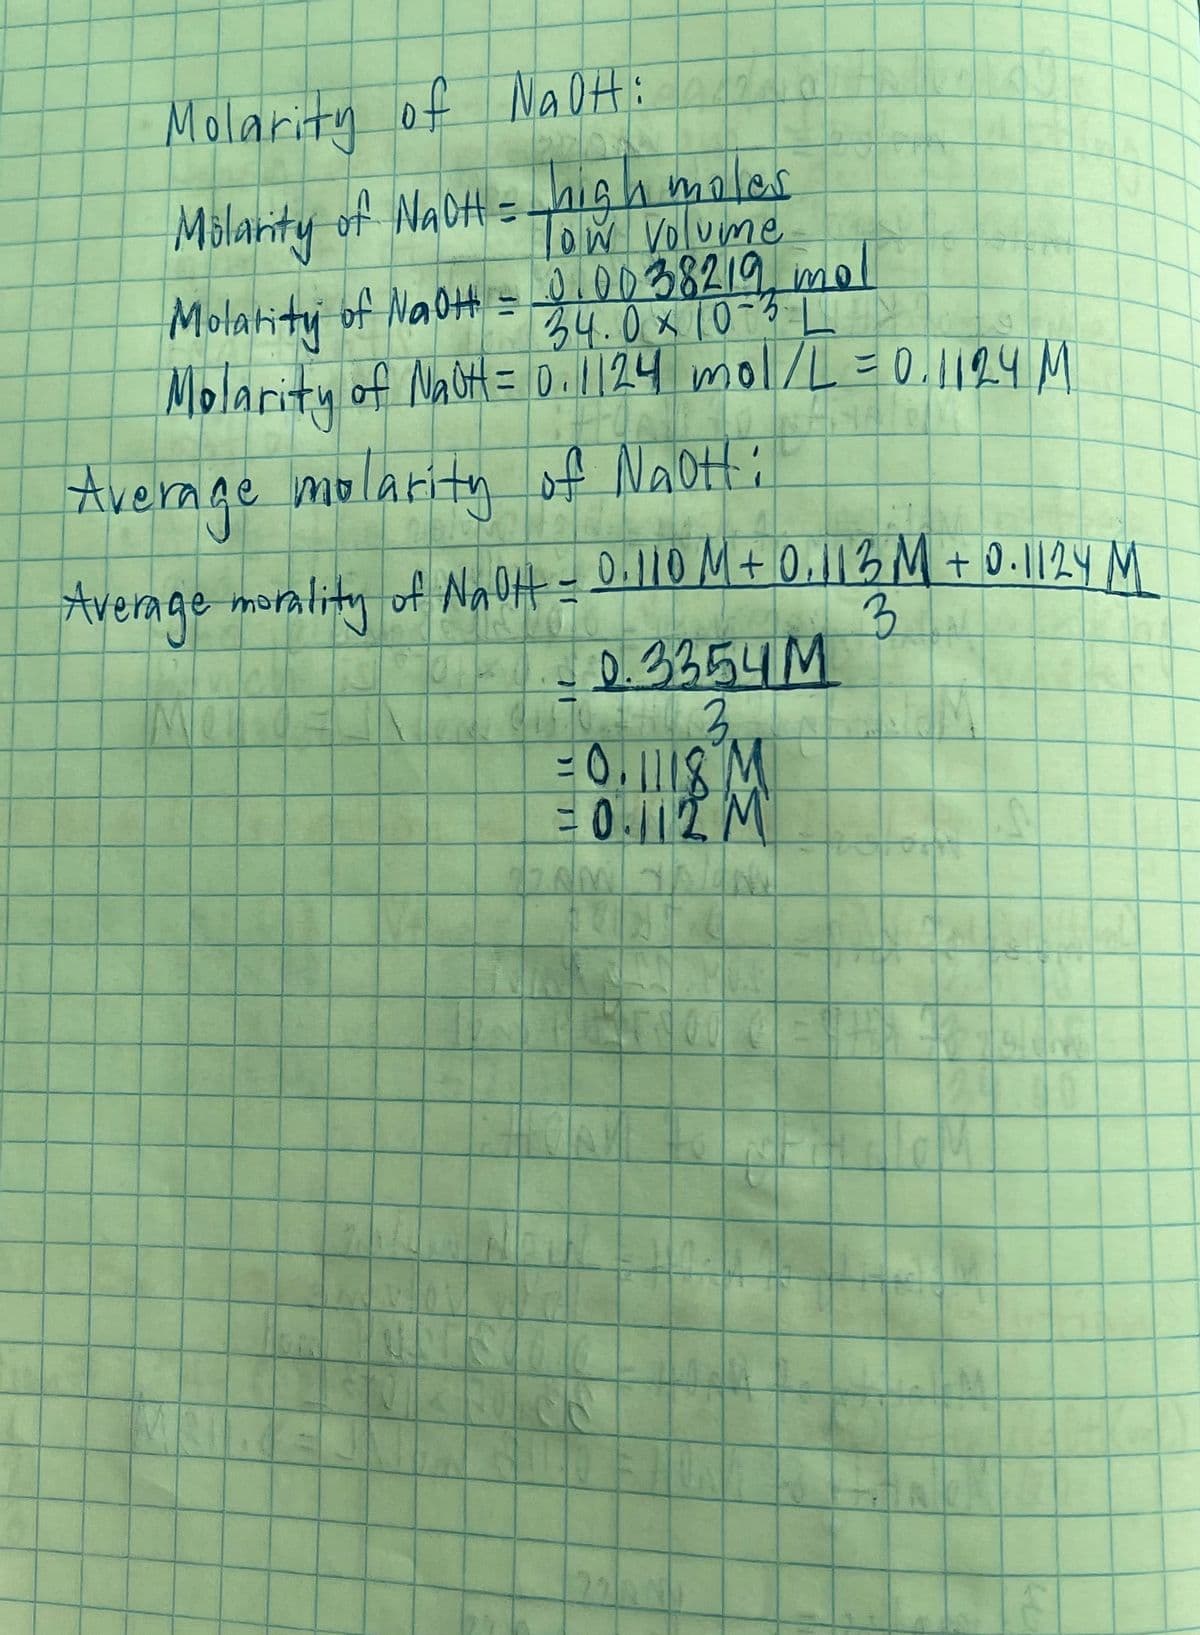 Molarity of NaOH:
Molarity of NaOH = high moles
low volume
Molarity of NaOH = 0.0038219 mol
34.0 x 10-3 L
Molarity of NaOH = 0.1124 mol/L = 0.1124 M
Average molarity of NaOH:
Average morality of NaOH = 0.110 M + 0.113 M + 0.1124 M
3
= 0.3354 M
3
= 0.1118 M
= 0.112 M